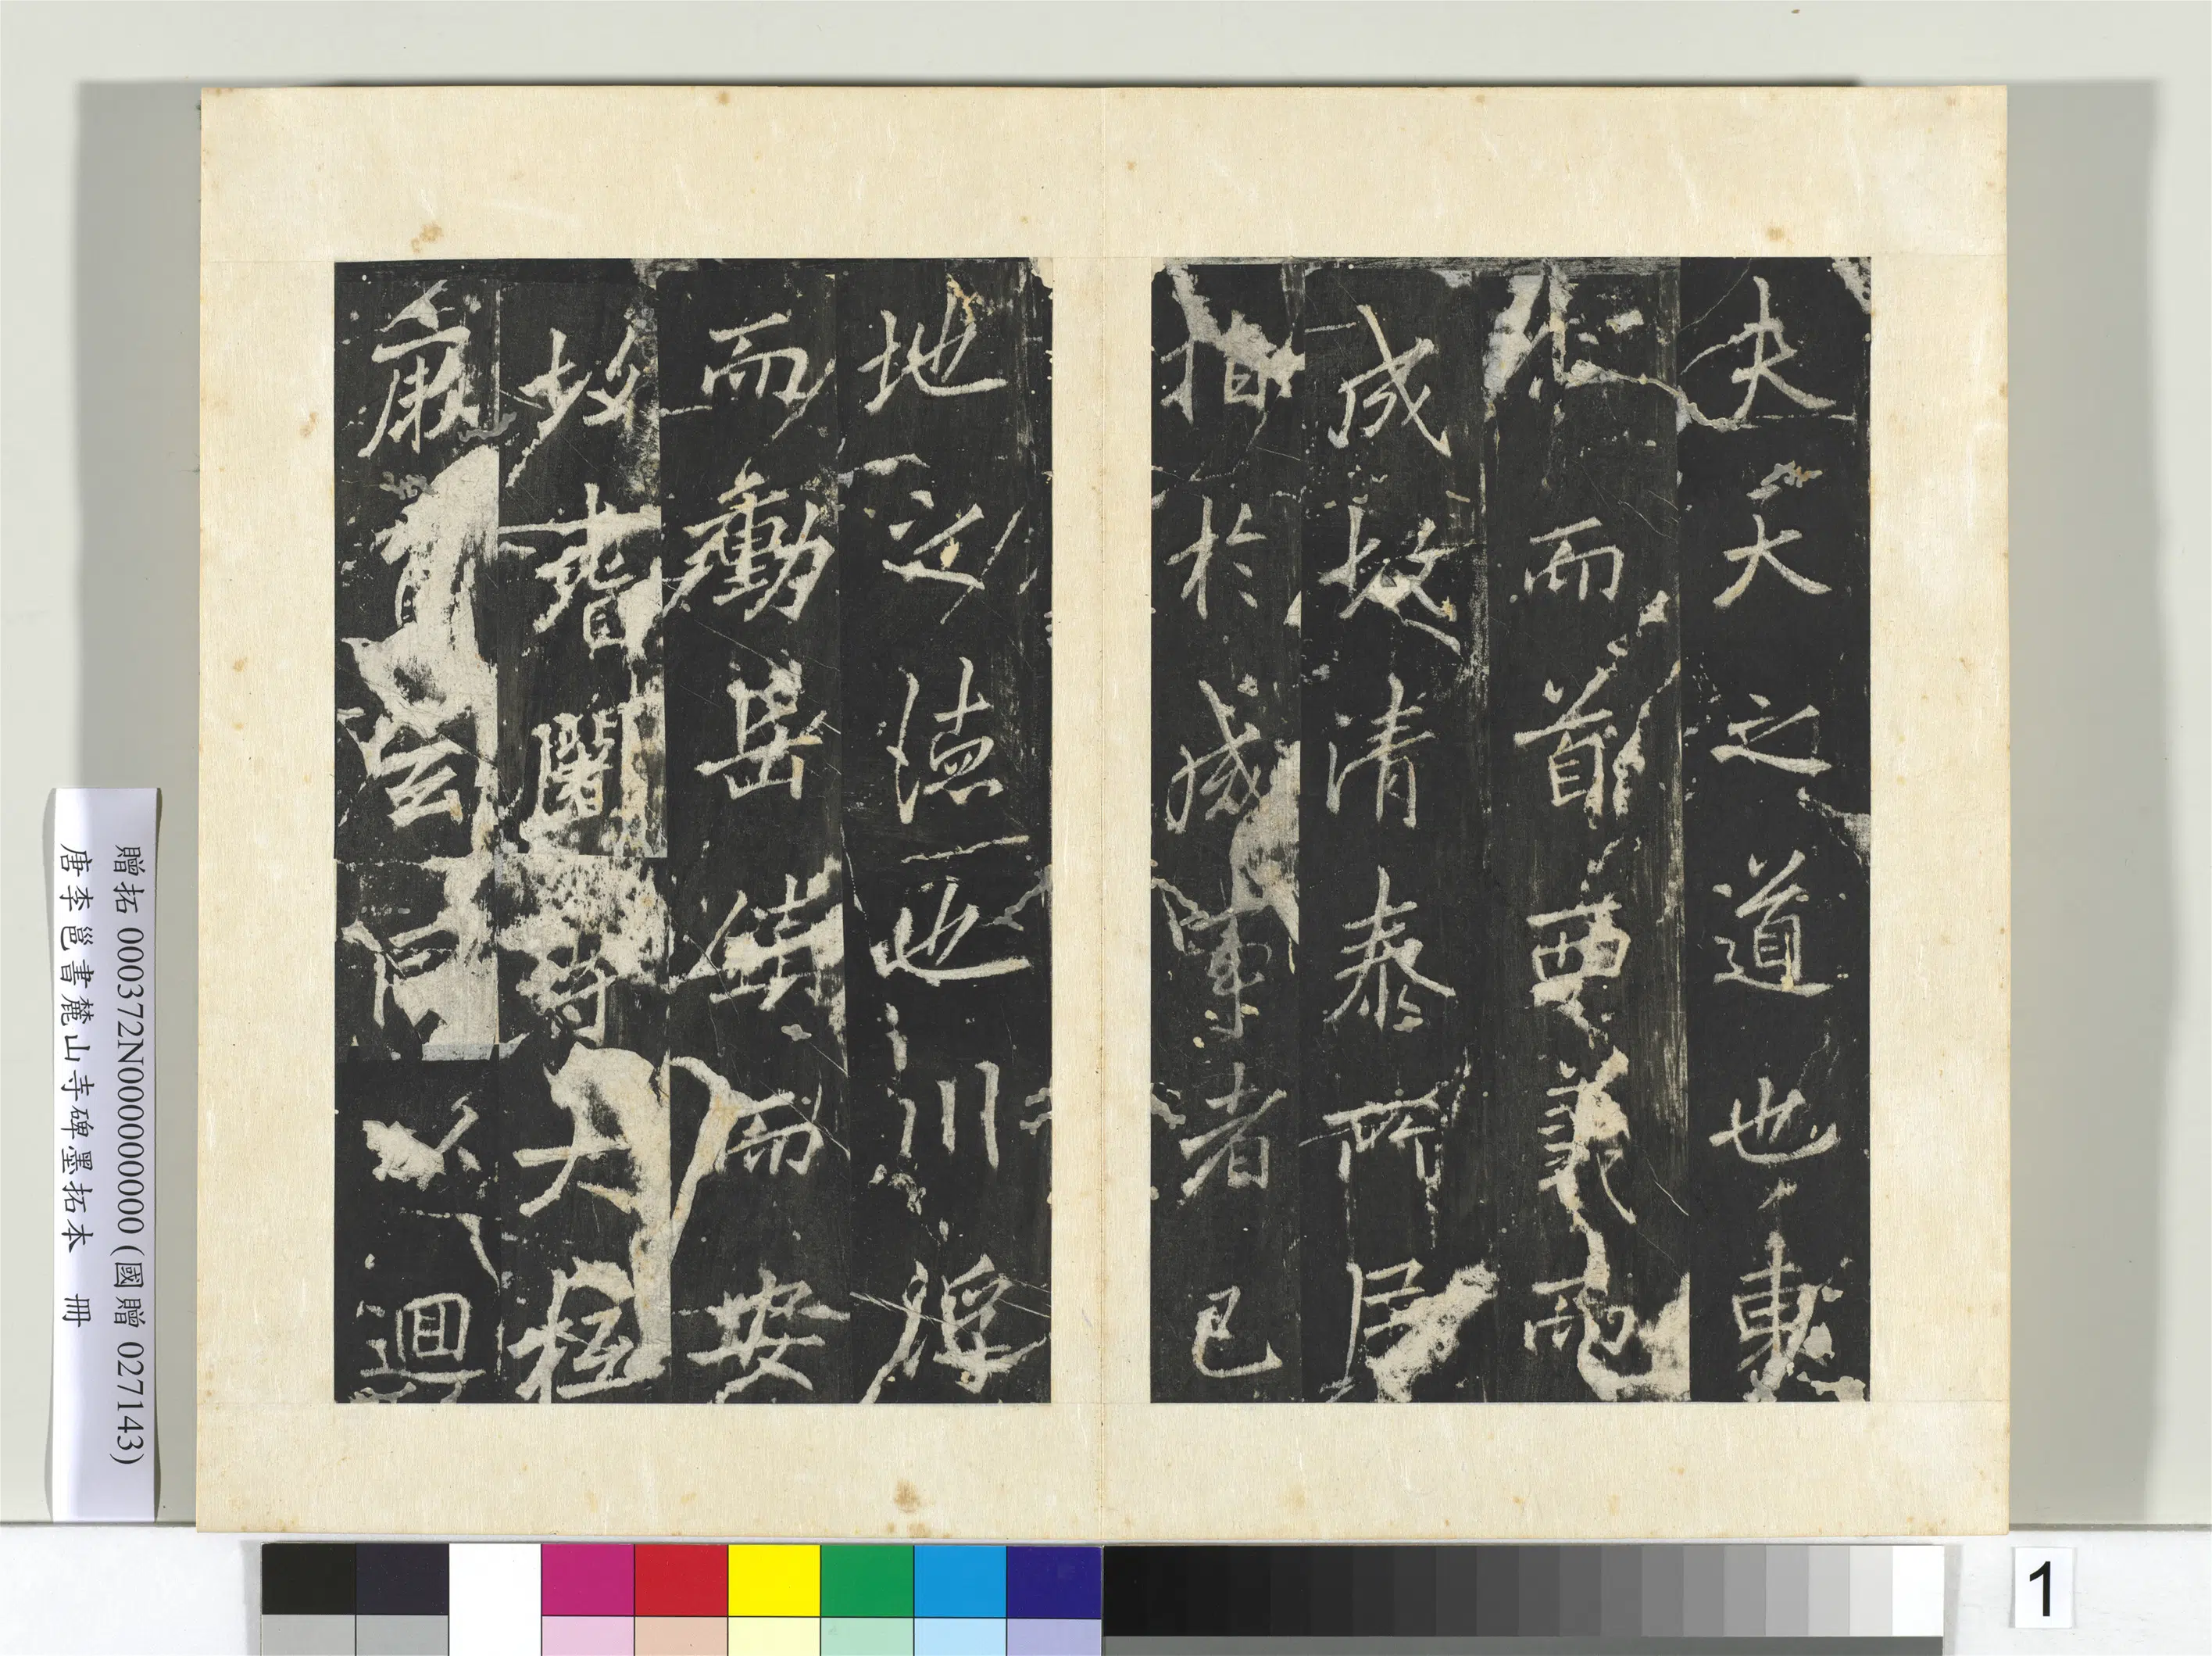 夫天之道也東
仁而首西義而
成故清泰所居
指於成事者已
地之德也川浮
而動岳鎮而安
故耆闍
迴
贈拓 000372N000000000 (國贈 027143)
唐李邕書麓山寺碑墨拓本 冊
1